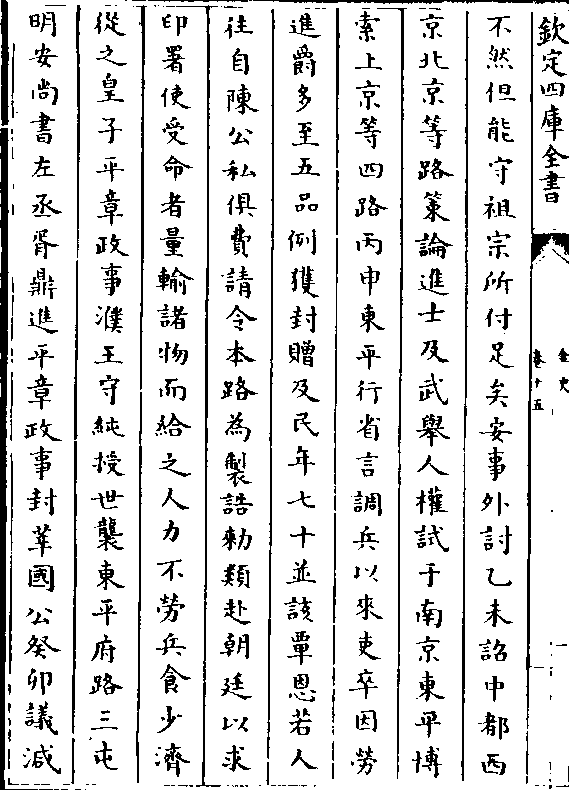 欽定四庫全書
金史
卷十五
不然但能守祖宗所付足矣安事外討乙未詔中都西
京北京等路策論進士及武舉人權試于南京東平博
索上京等四路丙申東平行省言調兵以來吏卒因勞
進爵多至五品例獲封贈及民年七十並該覃恩若人
往自陳公私俱費請令本路為製誥勑類赴朝廷以求
印署使受命者量輸諸物而給之人力不勞兵食少濟
從之皇子平章政事濮王守純授世襲東平府路三屯
明安尚書左丞胥鼎進平章政事封莘國公癸卯議減